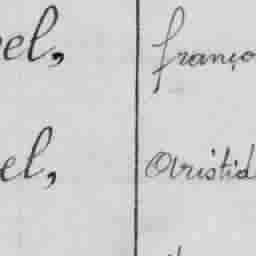 el, franço
el, Aristid